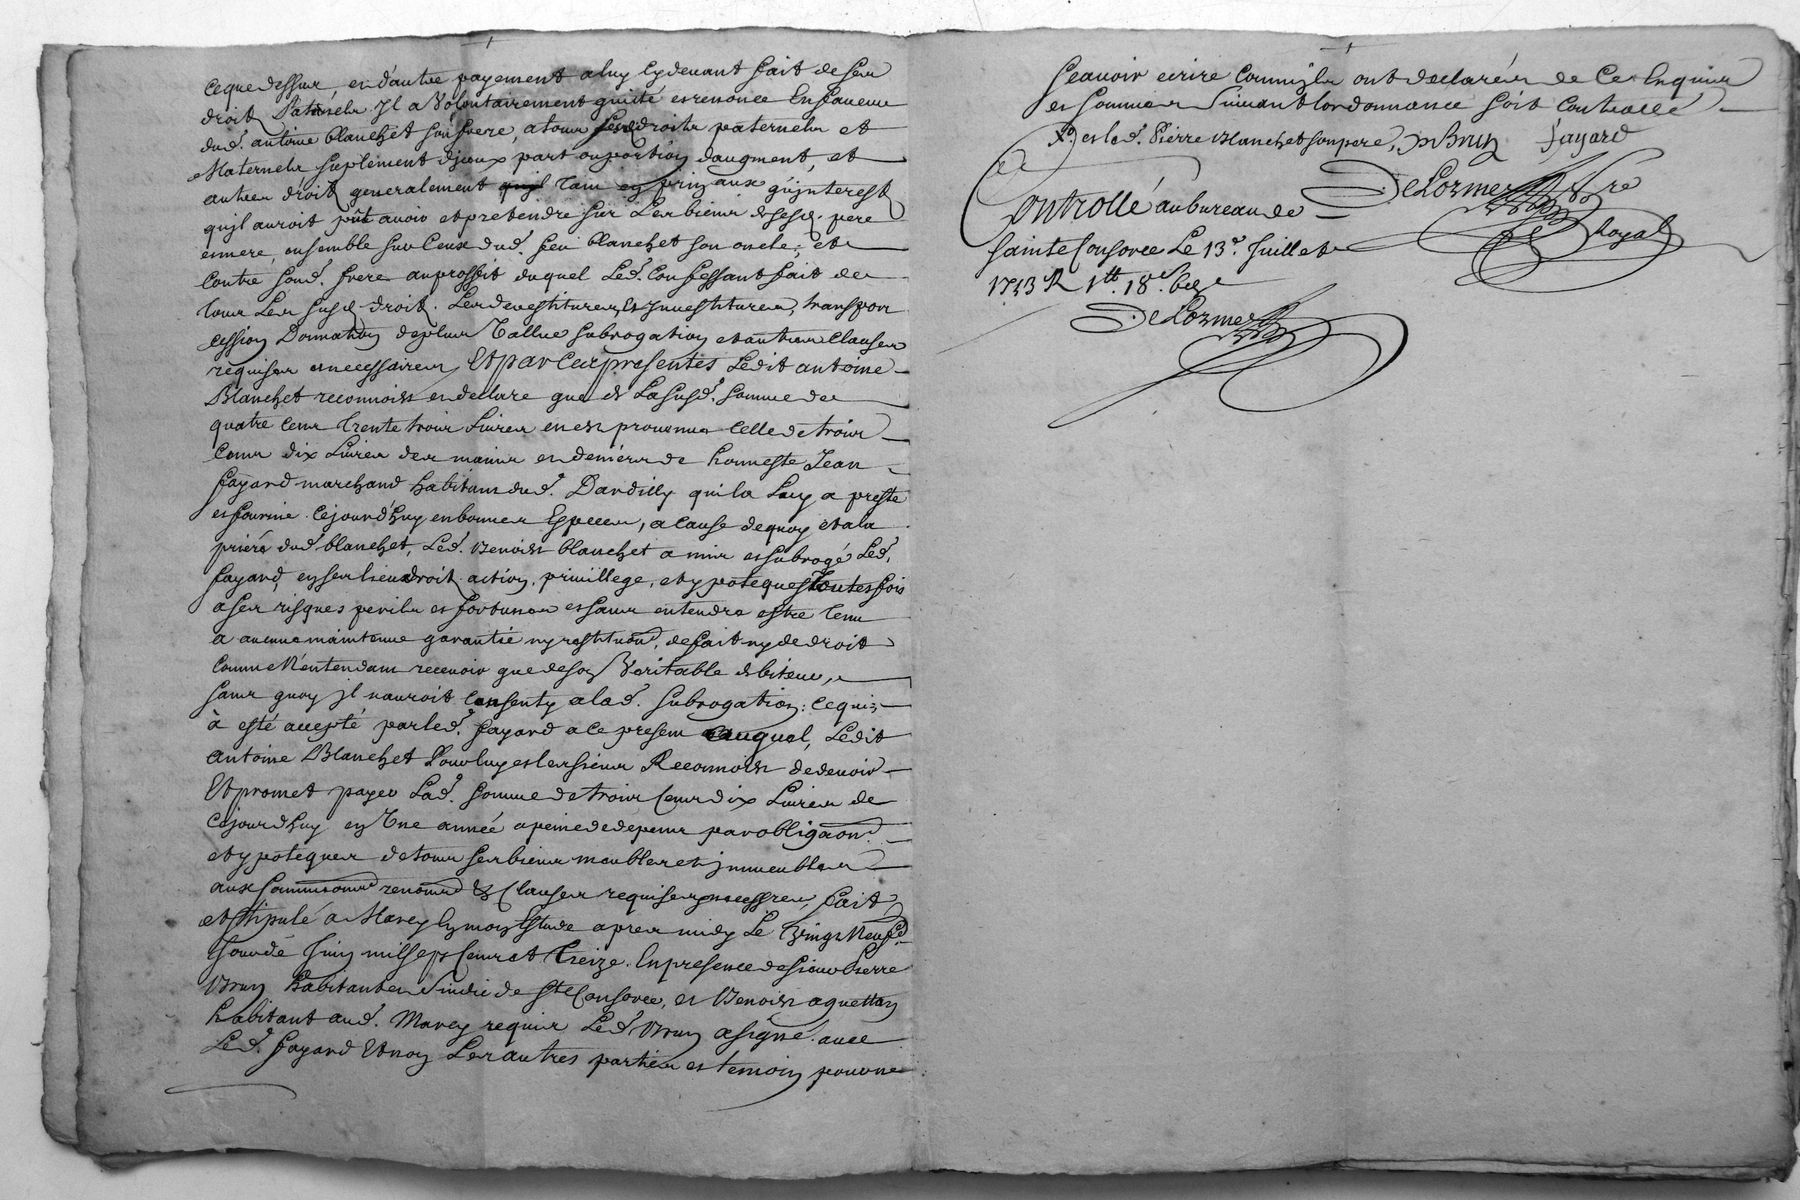 ce que dessus, et d'autre payement a luy cy devant fait de ses
droits Paternels Il a Volontairement quitté et renoncé En faveur
dud. antoine blanchet son frere, a tous ses droits paternels et
Maternels suplement d'jceux part ou portion d'augment, et
autres droits generalement tant en prinaux qu'jnterests
qujl auroit pût avoir et pretendre sur Les biens de sesd. pere
et mere, ensemble sur Ceux dud. feu blanchet son oncle, et
Contre sond. frere au proffit duquel Led. Confessant fait de
tous Les susd. droits Les devestitures et jnvestitures, transport
cession Donnation de plus Vallue subrogation et autres Clauses
requises et necessaires, Et par Ces presentes Ledit antoine
Blanchet reconnoist et declare que de La susd. somme de
quatre cens trente trois Livres en est provenue Celle de trois
Cens dix Livres des mains et deniers de honneste Jean
fayard marchand habitant dud. Dardilly qui la Luy a presté
et fournie cejourd'huy en bonnes Especes, a Cause de quoy et a la
priere dud. blanchet, Led. Benoist blanchet a mis et subrogé Led.
fayard en ses lieu droit action, privillege, et ypoteques toutesfois
a ses risques perils et fortunes et sans entendre estre tenu
a aucune maintenue garantie ny restituon de fait ny de droit
Comme N'entendant recevoir que de son Veritable debiteur,
sans quoy jl n'auroit Consenty a lad. subrogation: ce qui
à esté accepté par led. fayard a ce present auquel, Ledit
antoine Blanchet Pour luy et les siens Reconnoist de devoir
Et promet payer Lad. somme de trois Cens dix Livres de
Cejourd'huy en Une année a peine de depens par obligaon
et ypoteques de tous ses biens meubles et jmmeubles
aux soumissions renons & Clauses requises et necessres, fait
et stipulé a Marcy En mon Estude apres midy Le Vingt Neufe
jour de Juin mil sept Cens et treize. En presence de sieur Pierre
Brun habitant et sindic de Ste Consorce, et Benoist aguettan
habitant aud. Marcy requis Led. Brun a signé avec
Led. fayard Et non Les autres parties et temoin pour ne
sçavoir écrire Comm'jls ont declarés de Ce Enquis
et sommés suivant l'ordonnance soit Controllé
et led. Pierre blanchet son pere, P Brun fayard
DeLorme Nre
Royal
Controllé au bureau de
Sainte Consorce Le 13e Juillet
1713 R 1tt 18s
DeLorme